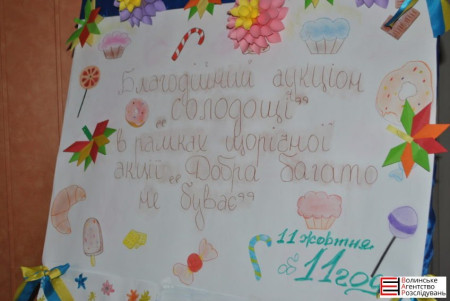 Благодійний аукціон
„Солодощі”
в рамках щорічної
акції „Добра багато
не буває”
11 жовтня
об 11 год
Волинське
Агентство
Розслідувань